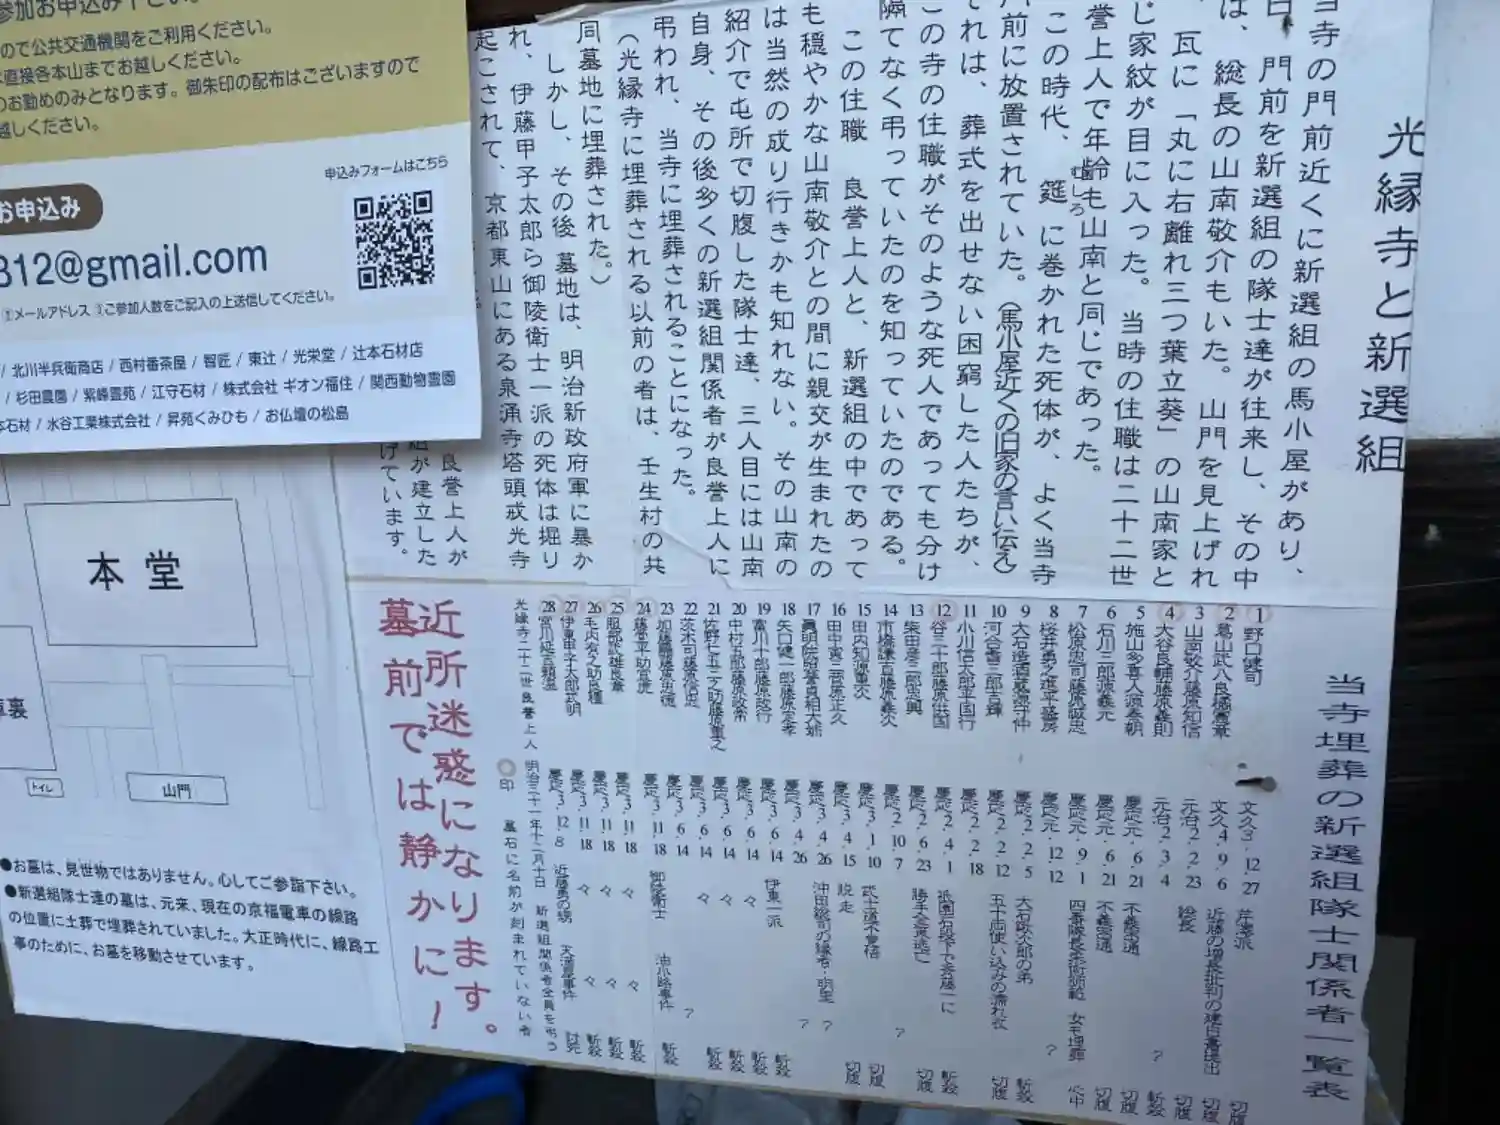 光縁寺と新選組
当寺の門前近くに新選組の馬小屋があり、
日、門前を新選組の隊士達が往来し、その中
は、総長の山南敬介もいた。山門を見上げれ
、瓦に「丸に右離れ三つ葉立葵」の山南家と
じ家紋が目に入った。当時の住職は二十二世
誉上人で年齢も山南と同じであった。
この時代、筵に巻かれた死体が、よく当寺
むしろ
門前に放置されていた。（馬小屋近くの旧家の言い伝え）
それは、葬式を出せない困窮した人たちが、
この寺の住職がそのような死人であっても分け
隔てなく弔っていたのを知っていたのである。
この住職 良誉上人と、新選組の中であって
も穏やかな山南敬介との間に親交が生まれたの
は当然の成り行きかも知れない。その山南の
紹介で屯所で切腹した隊士達、三人目には山南
自身、その後多くの新選組関係者が良誉上人に
弔われ、当寺に埋葬されることになった。
（光縁寺に埋葬される以前の者は、壬生村の共
同墓地に埋葬された。）
しかし、その後 墓地は、明治新政府軍に暴か
れ、伊藤甲子太郎ら御陵衛士一派の死体は掘り
起こされて、京都東山にある泉涌寺塔頭戒光寺
良誉上人が
組が建立した
げています。
参加お申込み下さい。
ので公共交通機関をご利用ください。
直接各本山までお越しください。
のお勤めのみとなります。御朱印の配布はございますので
越しください。
申込みフォームはこちら
お申込み
312@gmail.com
①メールアドレス ③ご参加人数をご記入の上送信してください。
/ 北川半兵衛商店 / 西村番茶屋 / 智匠 / 東辻 / 光栄堂 / 辻本石材店
/ 杉田農園 / 紫峰霊苑 / 江守石材 / 株式会社 ギオン福住 / 関西動物霊園
本石材 / 水谷工業株式会社 / 昇苑くみひも / お仏壇の松島
本堂
庫裏
トイレ
山門
●お墓は、見世物ではありません。心してご参詣下さい。
●新選組隊士達の墓は、元来、現在の京福電車の線路
の位置に土葬で埋葬されていました。大正時代に、線路工
事のために、お墓を移動させています。
当寺埋葬の新選組隊士関係者一覧表
1 野口健司 文久3.12.27 芹澤派 切腹
2 葛山武八良橘憲章 文久4.9.6 近藤の増長批判の建白書提出 切腹
3 山南敬介藤原知信 元治2.2.23 総長 切腹
4 大谷良輔藤原義則 元治2.3.4 ? 斬殺
5 施山多喜人源春朝 慶応元.6.21 不義密通 切腹
6 石川三郎源義元 慶応元.6.21 不義密通 切腹
7 松原忠司藤原誠忠 慶応元.9.1 四番隊長柔術師範 女も埋葬 心中
8 桜井勇之進平藤房 慶応元.12.12 ?
9 大石造酒蔵源守仲 慶応2.2.5 大石鍬次郎の弟 斬殺
10 河合耆三郎吉輝 慶応2.2.12 五十両使い込みの濡れ衣 切腹
11 小川信太郎平国行 慶応2.2.18
12 谷三十郎藤原供国 慶応2.4.1 祇園石段下で斎藤一に 斬殺
13 柴田彦三郎忠興 慶応2.6.23 勝手金策逃亡 切腹
14 市橋鎌吉藤原義次 慶応2.10.7 ?
15 田内知源重次 慶応3.1.10 武士道不覚悟 切腹
16 田中寅三菅原正久 慶応3.4.15 脱走 切腹
17 眞明院照誉貞相大姉 慶応3.4.26 沖田総司の縁者・明里 ?
18 矢口健一郎藤原定孝 慶応3.4.26 ?
19 富川十郎藤原政行 慶応3.6.14 伊東一派 斬殺
20 中村五郎藤原政常 慶応3.6.14 々 斬殺
21 佐野七五三之助藤原重之 慶応3.6.14 々 斬殺
22 茨木司藤原信忠 慶応3.6.14 々 斬殺
23 加藤羆藤原男徳 慶応3.6.14 ?
24 藤堂平助宜虎 慶応3.11.18 御陵衛士 油小路事件 斬殺
25 服部武雄良章 慶応3.11.18 々 々 斬殺
26 毛内有之助良穐 慶応3.11.18 々 々 斬殺
27 伊東甲子太郎武明 慶応3.11.18 々 々 斬殺
28 宮川延吉頼温 慶応3.12.8 近藤勇の甥 天満屋事件 討死
光縁寺二十二世良誉上人 明治三十一年十二月十日 新選組関係者全員を弔う
○印 墓石に名前が刻まれていない者
近所迷惑になります。
墓前では静かに！